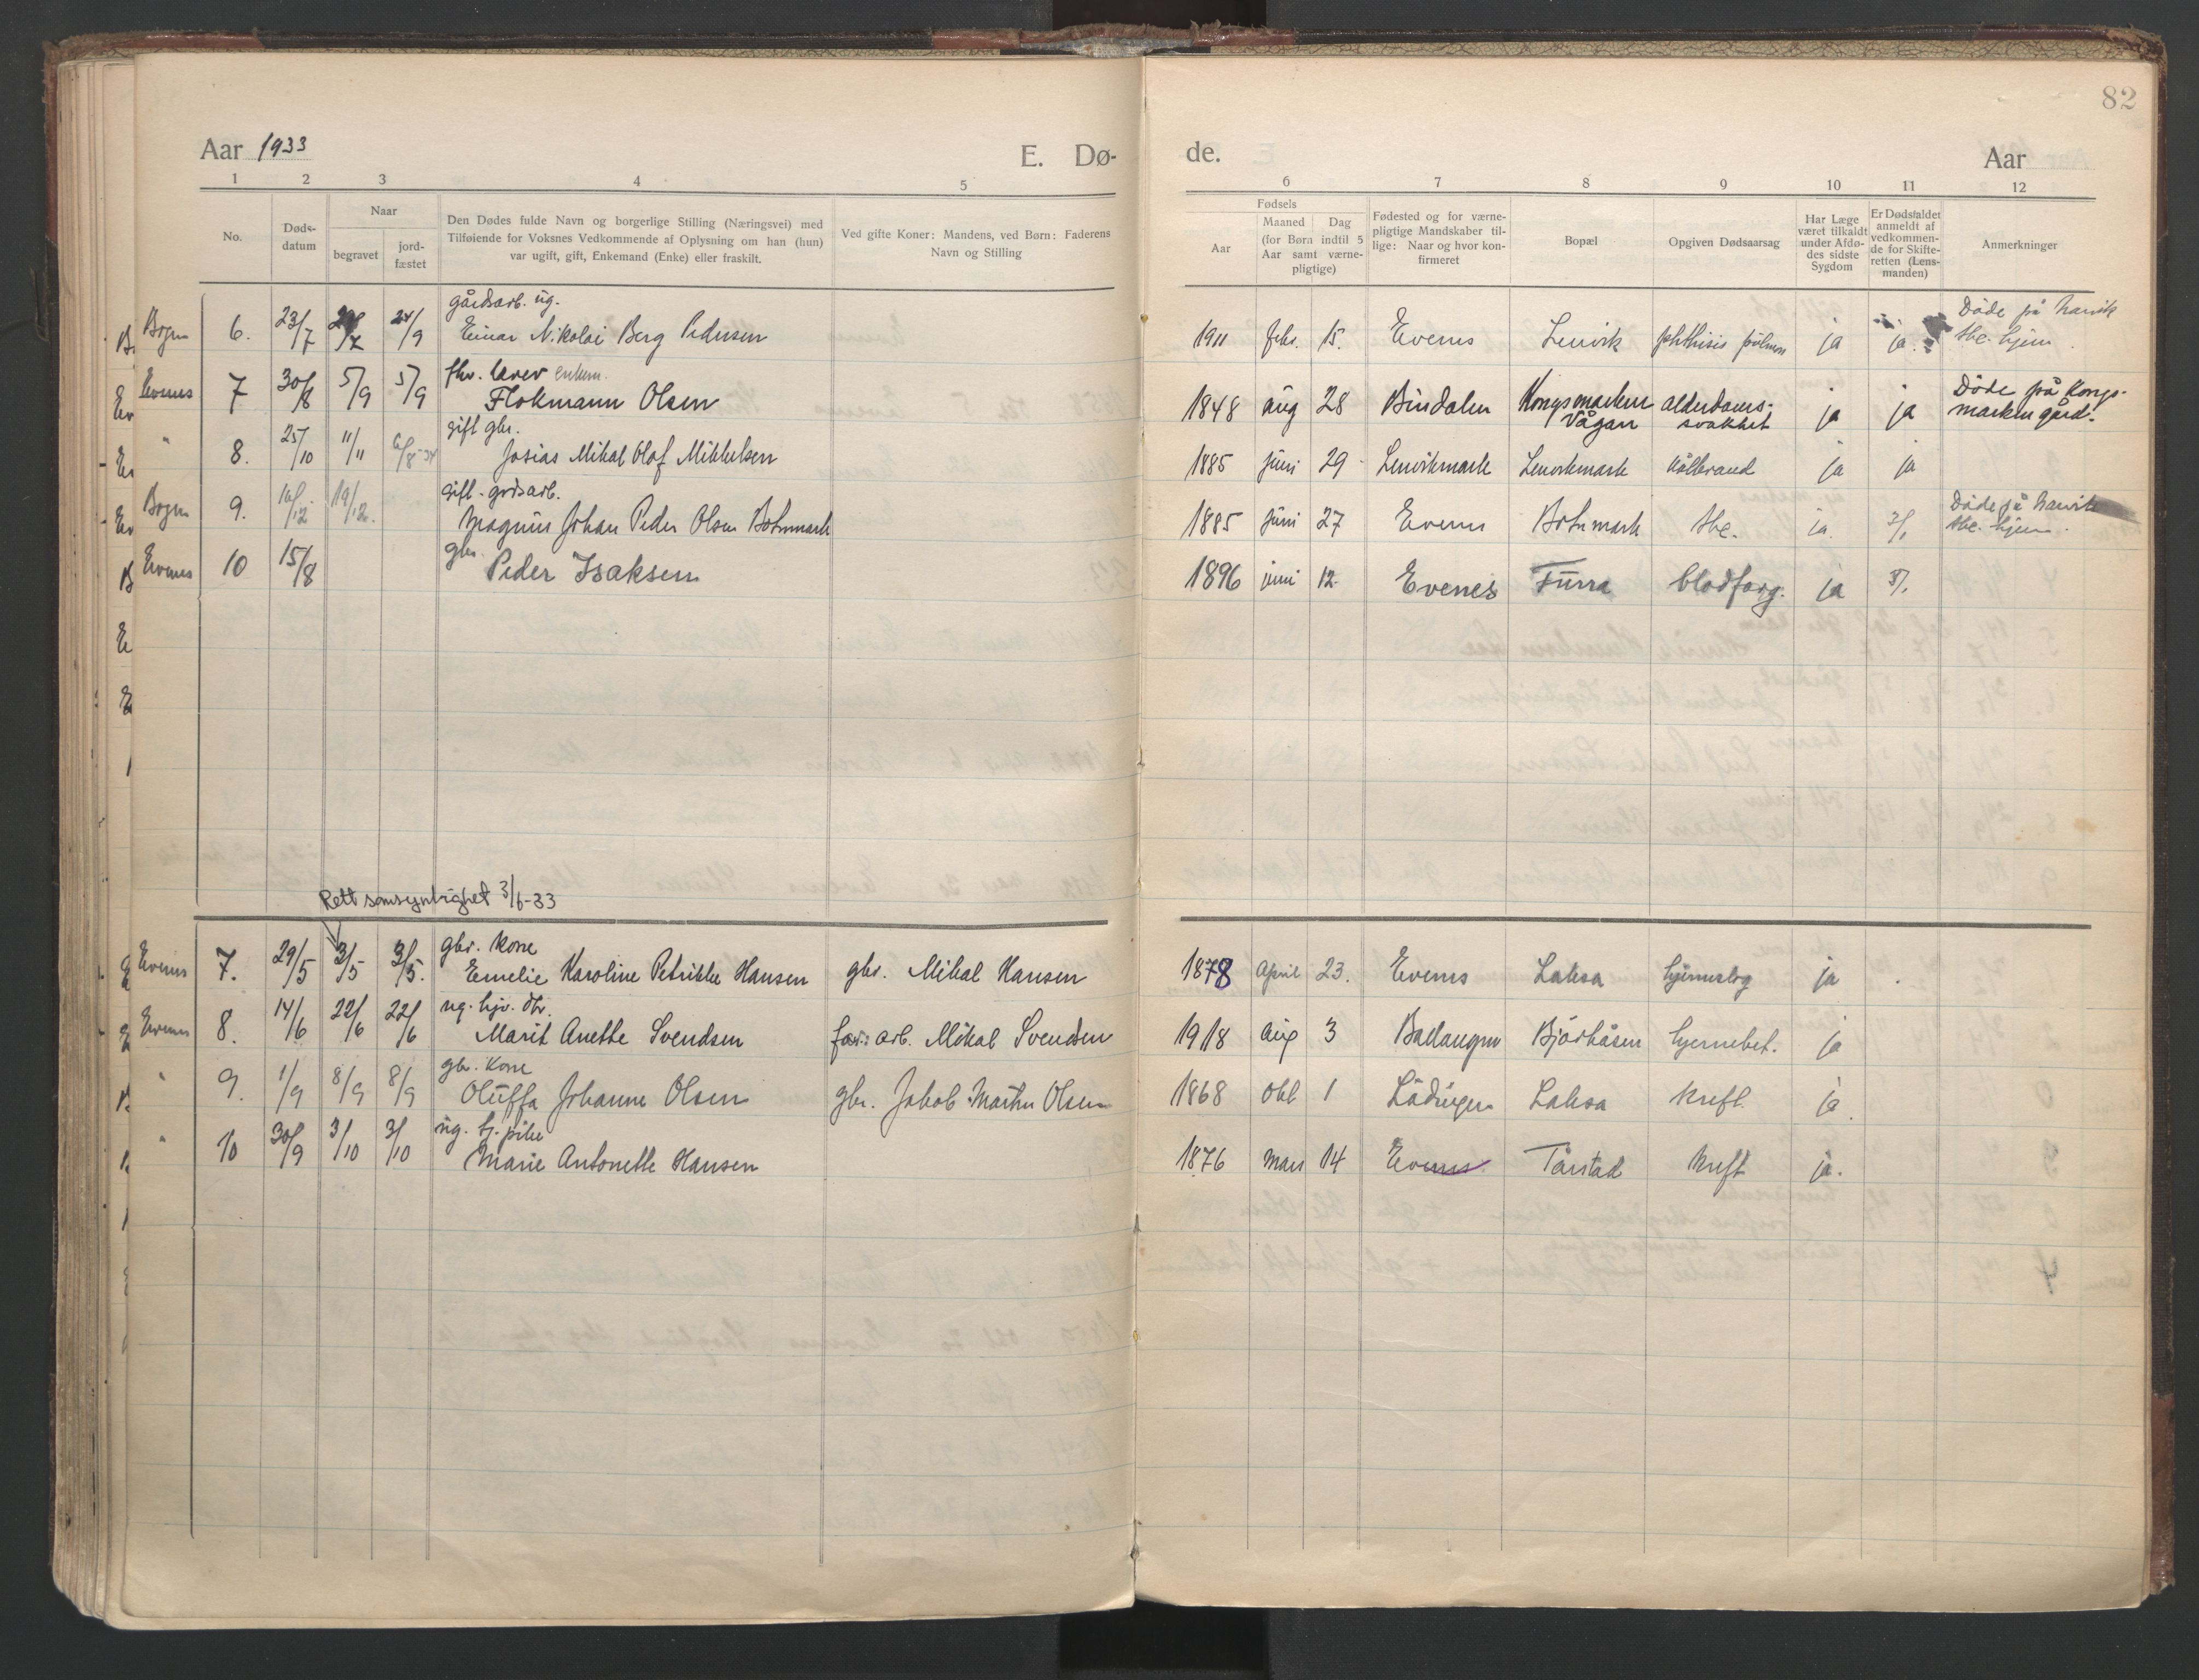 82
Aar 1933 E. Dø- de. Aar
1 2 3 4 5 6 7 8 9 10 11 12
No.
Døds-
datum
Naar
begravet
jord-
fæstet
Den Dødes fulde Navn og borgerlige Stilling (Næringsvei) med
Tilføiende for Voksnes Vedkommende af Oplysning om han (hun)
var ugift, gift, Enkemand (Enke) eller fraskilt.
Ved gifte Koner: Mandens, ved Børn: Faderens
Navn og Stilling
Fødsels
Aar
Maaned Dag
(for Børn indtil 5
Aar samt værne-
pligtige)
Fødested og for værne-
pligtige Mandskaber til-
lige: Naar og hvor kon-
firmeret
Bopæl
Opgiven Dødsaarsag
Har Læge
været tilkaldt
under Afdø-
des sidste
Sygdom
Er Dødsfaldet
anmeldt af
vedkommen-
de for Skifte-
retten (Lens-
manden)
Anmerkninger
gårdsarb. ug. Døde på Narvik
Bogen 6. 23/7 24/9 Einar Nikolai Berg Pedersen 1911 febr. 15. Evenes Lenvik phthisis pulmon ja ja. tbc. hjem.
fhv. lærer enkem. Døde på Kongs-
Evenes 7 30/8 5/9 5/9 Flokmann Olsen 1848 aug 28 Bindalen Kongsmarken alderdoms- ja ja marken gård.
Vågan svakhet
gift gbr.
" 8. 25/10 11/11 Josias Mikal Olaf Mikkelsen 1885 juni 29 Lenvikmark Lenvikmark kolbrand ja ja
gift. grdsarb. Døde på Narvik
Bogen 9. 16/12 19/12. Magnus Johan Peder Olsen Botnmark 1885 juni 27 Evenes Botnmark tbc. ja. 3/1 tbc. hjem.
gbr.
Evenes 10 15/8 Peder Isaksen 1896 juni 12 Evenes Turra blodforg. ja
Rett sansynlighet 3/6-33
gbr. kone
Evenes 7. 29/5 3/5 3/5. Emelie Karoline Petrikke Hansen gbr. Mikal Hansen 1878 April 23. Evenes Laksa hjerneslag ja
ug. hjv. dtr.
Evenes 8. 14/6 22/6 22/6 Marit Anette Svendsen far: arb. Mikal Svendsen 1918 aug 3 Ballangen Bjørkåsen hjernebet. ja
gbr. kone
" 9. 1/9 8/9 8/9 Oluffa Johanne Olsen gbr. Jakob Martin Olsen 1868 okt 1 Lødingen Laksa kreft. ja.
ug. hj. pike
" 10 30/9 3/10 3/10 Marie Antonette Hansen 1876 mars 14 Evenes Tårstad kreft ja.